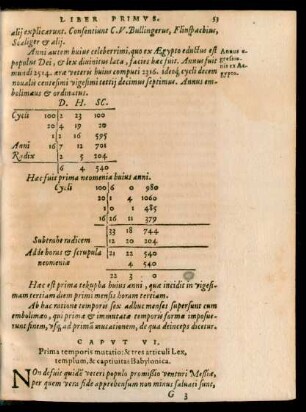 LIBER PRIMVS. 53
alij explicarunt. Consentiunt C. V. Bullingerus, Flinspachius,
Scaliger & alij.
Anni autem huius celeberrimi, quo ex Ægypto eductus est
populus Dei, & lex divinitus lata, facies hæc fuit. Annus fuit
mundi 2514. æræ veteris huius computi 2316. ideoq́; cycli decem
novalis centesimi vigesimi tertij decimus septimus. Annus em-
bolimæus & ordinatus.
Annus e-
gressio-
nis ex Æ-
gypto.
D. H. SC.
Cycli 100 2 23 100
20 4 19 20
1 2 16 595
Anni 16 7 12 701
Radix 2 5 204
6 4 540
Hæc fuit prima neomenia huius anni.
Cycli 100 6 0 980
20 1 4 1060
1 0 1 485
16 26 11 379
33 18 744
Subtrahe radicem 12 20 204
Adde horas & scrupula 21 22 540
neomenia 4 540
22 3 0
Hæc est prima tekupha huius anni, quæ incidit in vigesi-
mam tertiam diem primi mensis horam tertiam.
Ab hac ratione temporis sex adhuc menses supersunt cum
embolimæo, qui primæ & immutatæ temporis formæ imposue-
runt finem, usq́; ad primam mutationem, de qua deinceps dicetur.
CAPVT VI.
Prima temporis mutatio: & tres articuli Lex,
templum, & captivitas Babylonica.
NOn defuit quidē veteri populo promissio venturi Messiæ,
per quem vera fide apprehensum non minus salvati sunt,
G 3